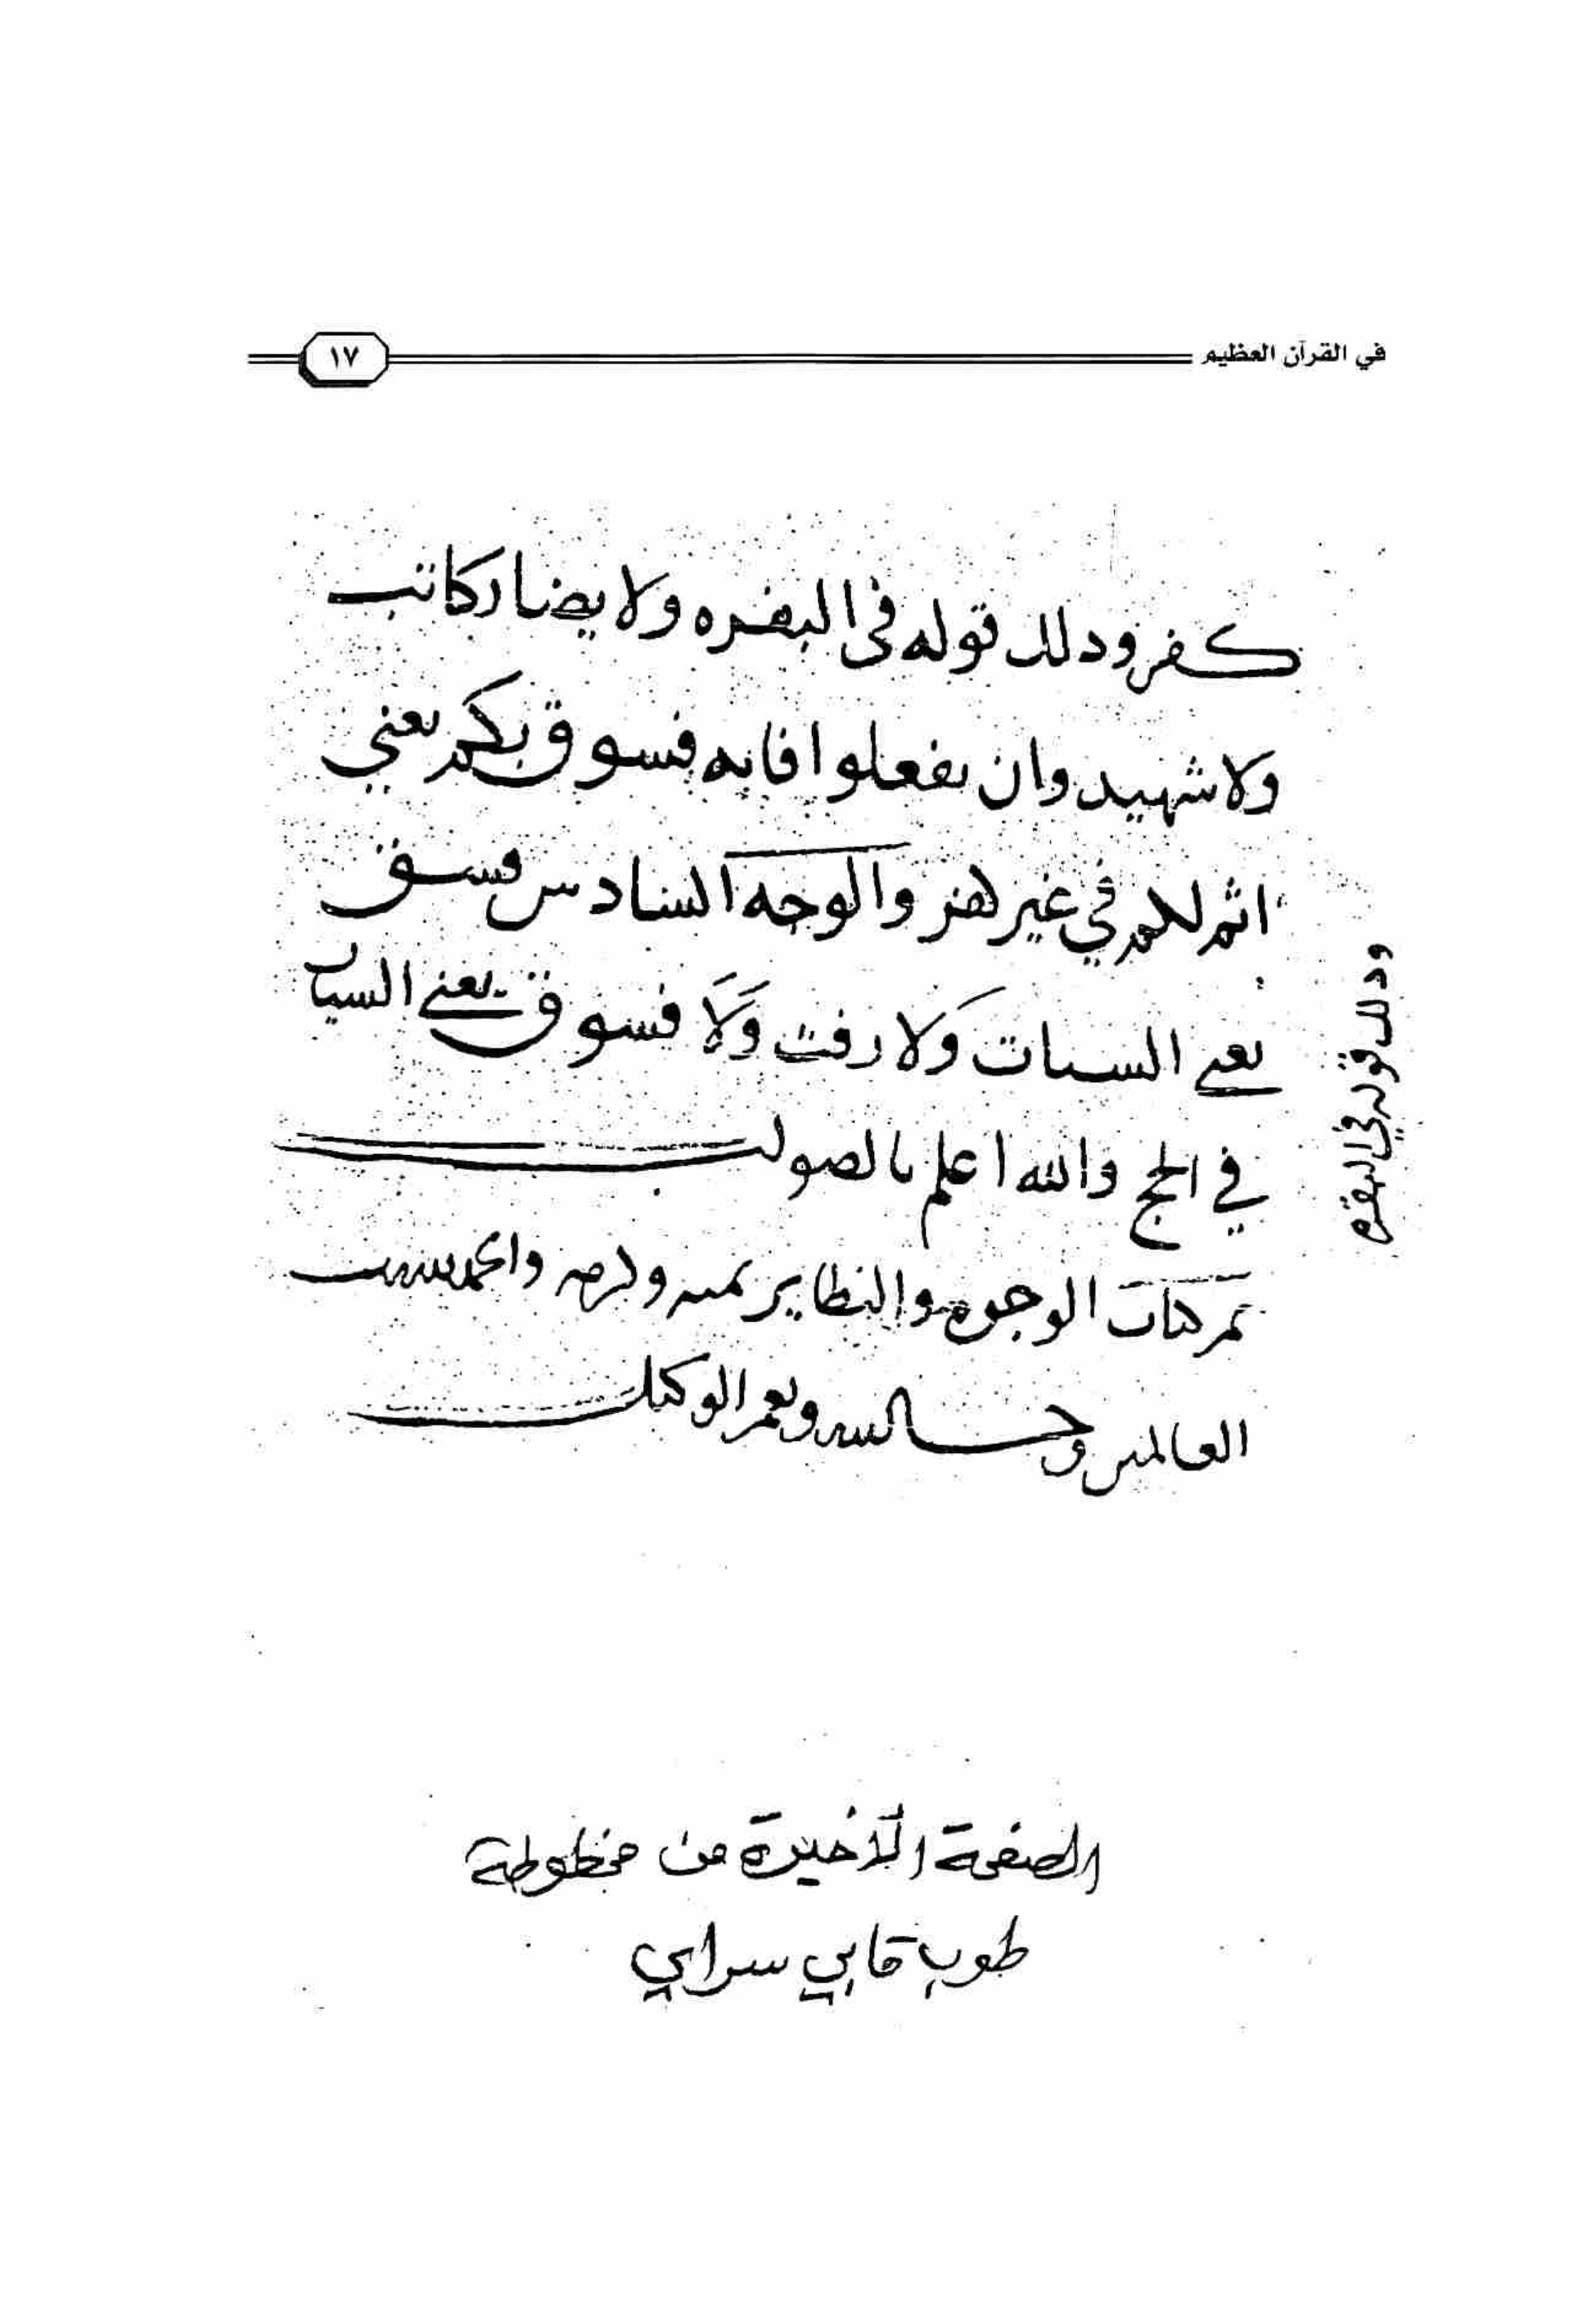 في القرآن العظيم
١٧
كفر وذلك قوله في البقره ولا يضار كاتب
ولا شهيد وان تفعلوا فانه فسوق بكم يعني
اثم لكم في غير كفر والوجه السادس فسق
يعني السباب ولا رفث ولا فسوق يعني السباب
في الحج والله اعلم بالصواب
تم كتاب الوجوه والنظاير بمنه وكرمه والحمد لله رب
العالمين وحسبنا الله ونعم الوكيل
وذلك قوله في البقره
الصفحة الأخيرة من مخطوطة
طوب قابي سراي